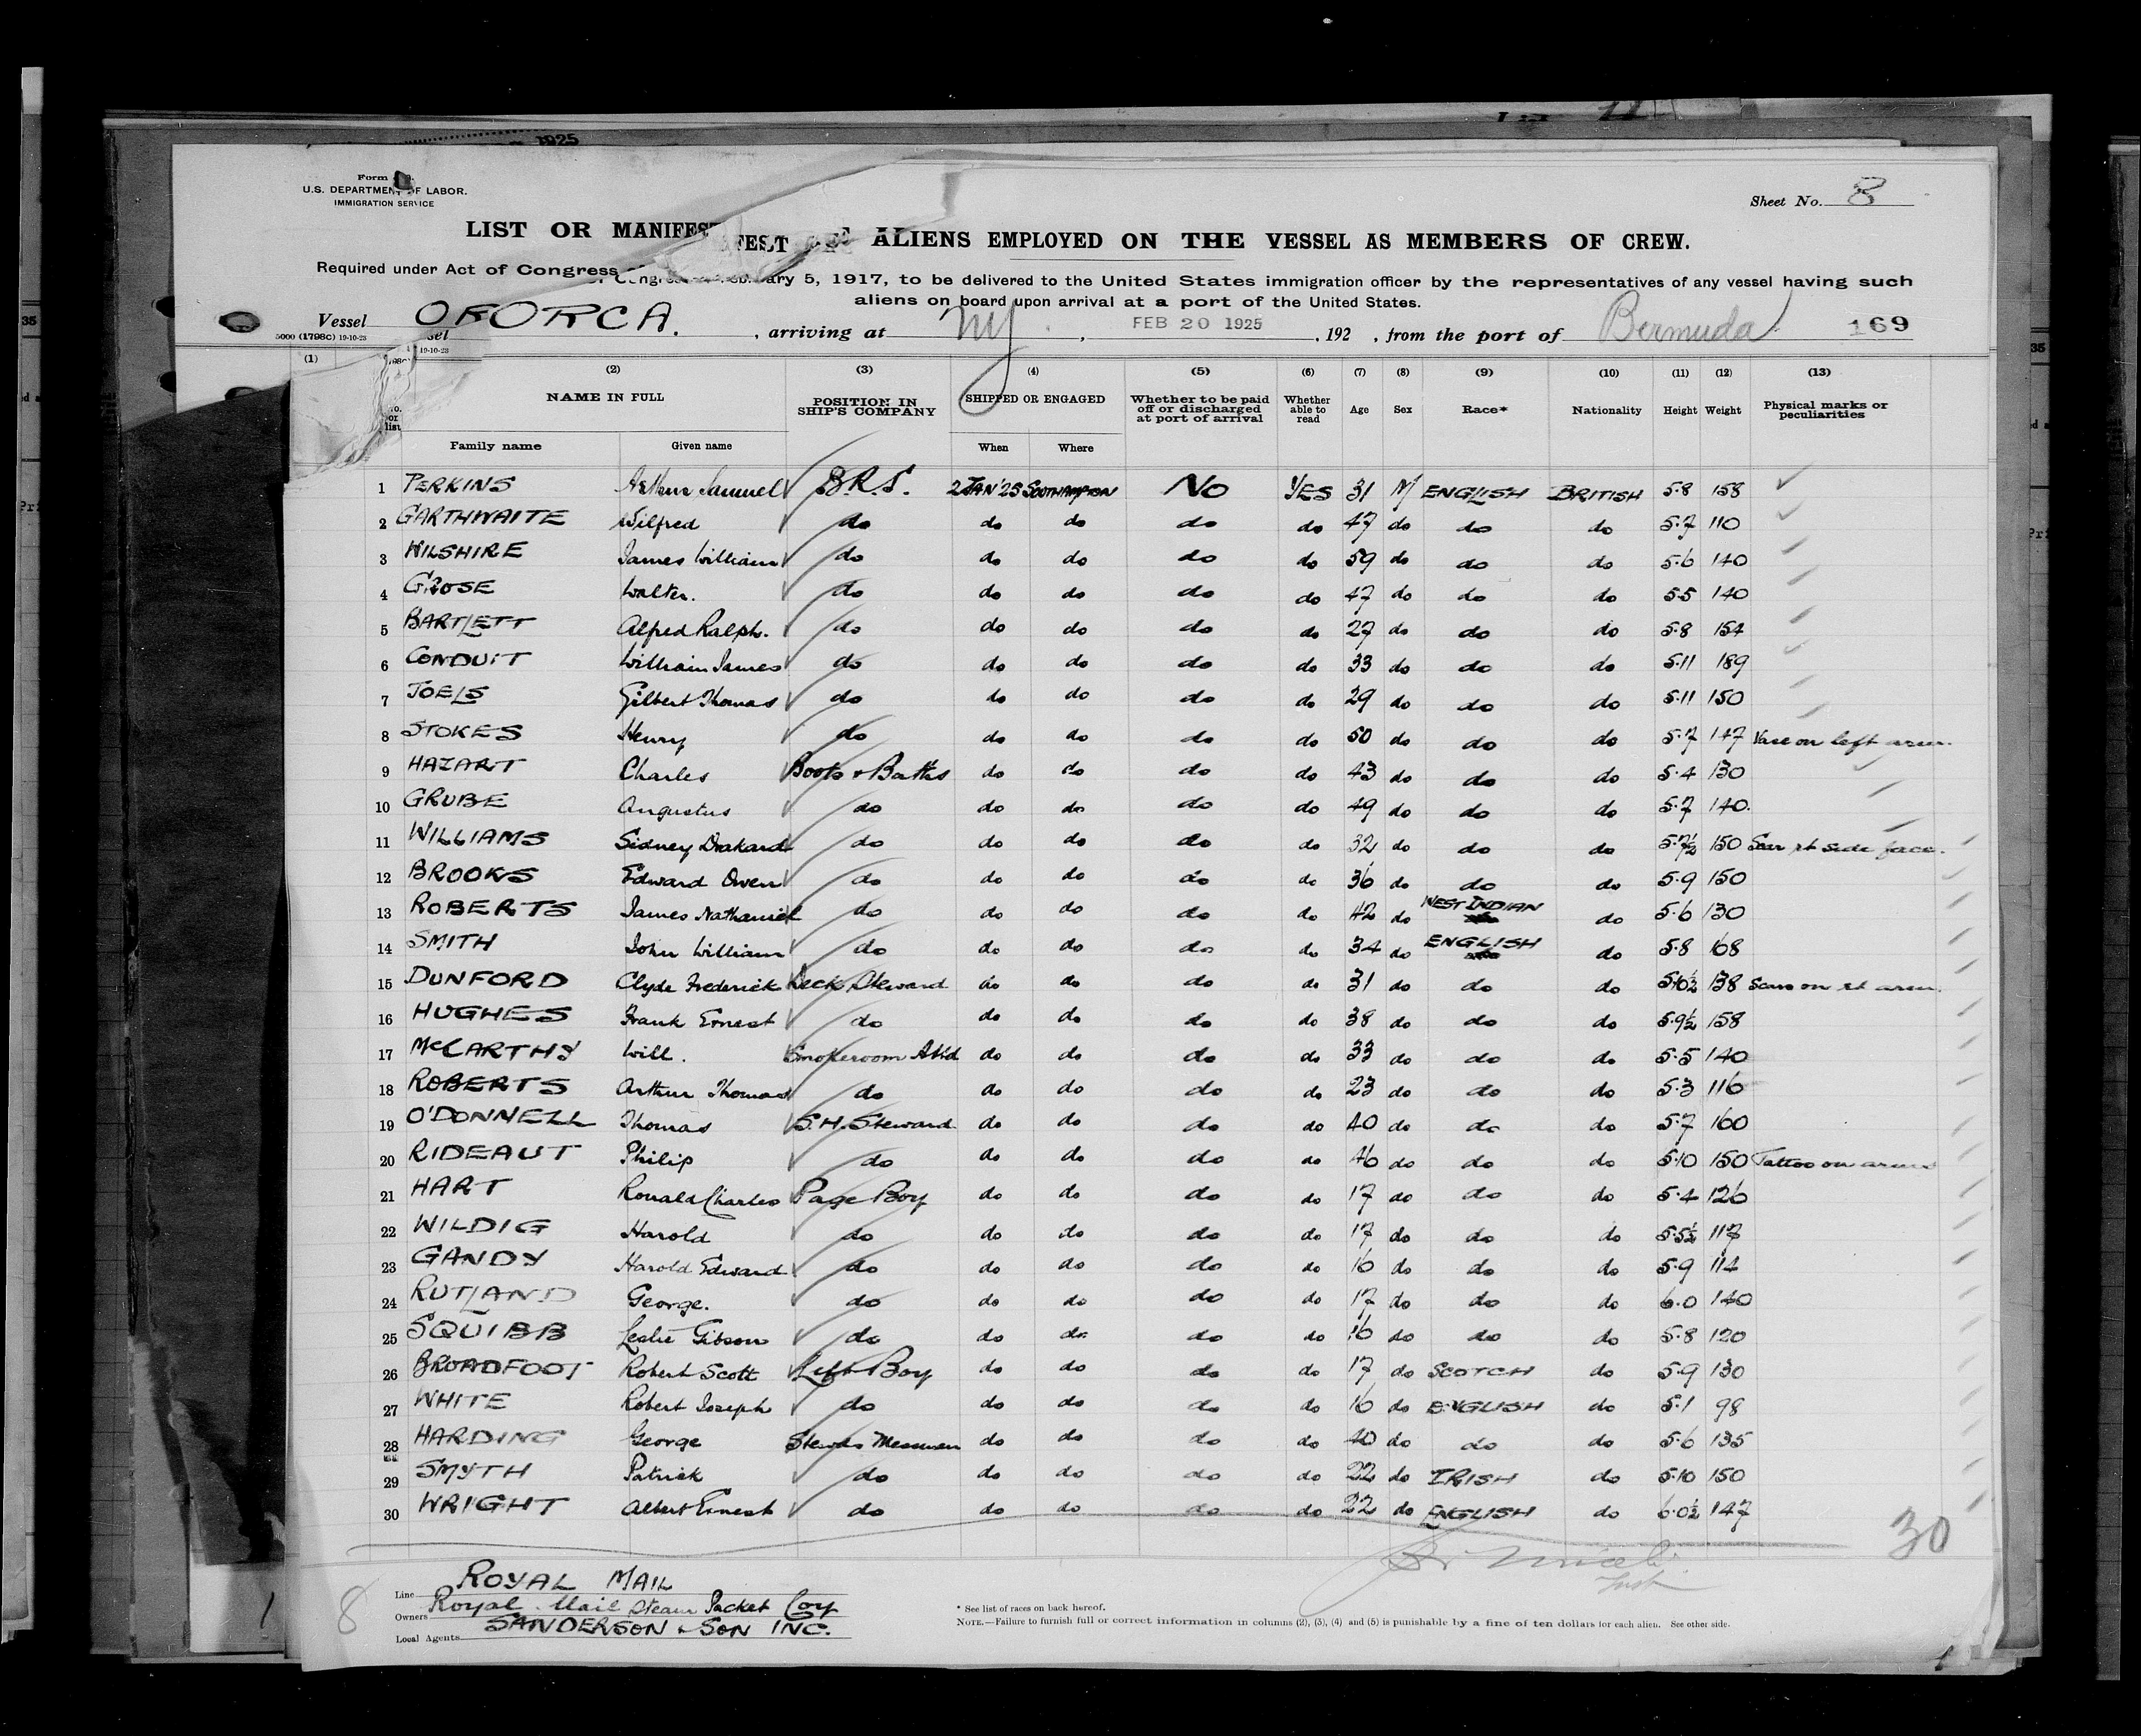 1925
Form
U.S. DEPARTMENT OF LABOR.
IMMIGRATION SERVICE
Sheet No. 8
LIST OR MANIFEST ALIENS EMPLOYED ON THE VESSEL AS MEMBERS OF CREW.
Required under Act of Congress February 5, 1917, to be delivered to the United States immigration officer by the representatives of any vessel having such
aliens on board upon arrival at a port of the United States.
Vessel OFORCA. , arriving at NY , FEB 20 1925 , 192 , from the port of Bermuda 169
5000 (1798c) 19-10-23
(1) (2) (3) (4) (5) (6) (7) (8) (9) (10) (11) (12) (13)
No. on list NAME IN FULL POSITION IN SHIP'S COMPANY SHIPPED OR ENGAGED Whether to be paid off or discharged at port of arrival Whether able to read Age Sex Race* Nationality Height Weight Physical marks or peculiarities
Family name Given name When Where
1 PERKINS Arthur Samuel B.R.S. 2 JAN '25 SOUTHAMPTON NO YES 31 M ENGLISH BRITISH 5.8 158
2 GARTHWAITE Wilfred do do do do do 47 do do do 5.7 110
3 WILSHIRE James William do do do do do 59 do do do 5.6 140
4 GROSE Walter. do do do do do 47 do do do 5.5 140
5 BARTLETT Alfred Ralph. do do do do do 27 do do do 5.8 154
6 CONDUIT William James do do do do do 33 do do do 5.11 189
7 JOELS Gilbert Thomas do do do do do 29 do do do 5.11 150
8 STOKES Henry do do do do do 50 do do do 5.7 147 on left arm.
9 HAZART Charles Boots & Baths do do do do 43 do do do 5.4 130
10 GRUBE Augustus do do do do do 49 do do do 5.7 140.
11 WILLIAMS Sidney Drakard do do do do do 32 do do do 5.7½ 150 Scar rt side face.
12 BROOKS Edward Owen do do do do do 36 do do do 5.9 150
13 ROBERTS James Nathaniel do do do do do 42 do WEST INDIAN do 5.6 130
14 SMITH John William do do do do do 34 do ENGLISH do 5.8 168
15 DUNFORD Clyde Frederick Deck Steward do do do do 31 do do do 5.10½ 138 Scars on rt arm.
16 HUGHES Frank Ernest do do do do do 38 do do do 5.9½ 158
17 McCARTHY Will. Smokeroom Attd do do do do 33 do do do 5.5 140
18 ROBERTS Arthur Thomas do do do do do 23 do do do 5.3 116
19 O'DONNELL Thomas S.H. Steward do do do do 40 do do do 5.7 160
20 RIDEAUT Philip do do do do do 46 do do do 5.10 150 Tattoo on arms
21 HART Ronald Charles Page Boy do do do do 17 do do do 5.4 126
22 WILDIG Harold do do do do do 17 do do do 5.5½ 117
23 GANDY Harold Edward do do do do do 16 do do do 5.9 114
24 RUTLAND George. do do do do do 17 do do do 6.0 140
25 SQUIBB Leslie Gibson do do do do do 16 do do do 5.8 120
26 BROADFOOT Robert Scott Lift Boy do do do do 17 do SCOTCH do 5.9 130
27 WHITE Robert Joseph do do do do do 16 do ENGLISH do 5.1 98
28 HARDING George Stewds Messman do do do do 40 do do do 5.6 135
29 SMYTH Patrick do do do do do 22 do IRISH do 5.10 150
30 WRIGHT Albert Ernest do do do do do 22 do ENGLISH do 6.0½ 147
30
8
Line ROYAL MAIL
Owners Royal Mail Steam Packet Coy
Local Agents SANDERSON & SON INC.
* See list of races on back hereof.
NOTE.—Failure to furnish full or correct information in columns (2), (3), (4) and (5) is punishable by a fine of ten dollars for each alien. See other side.